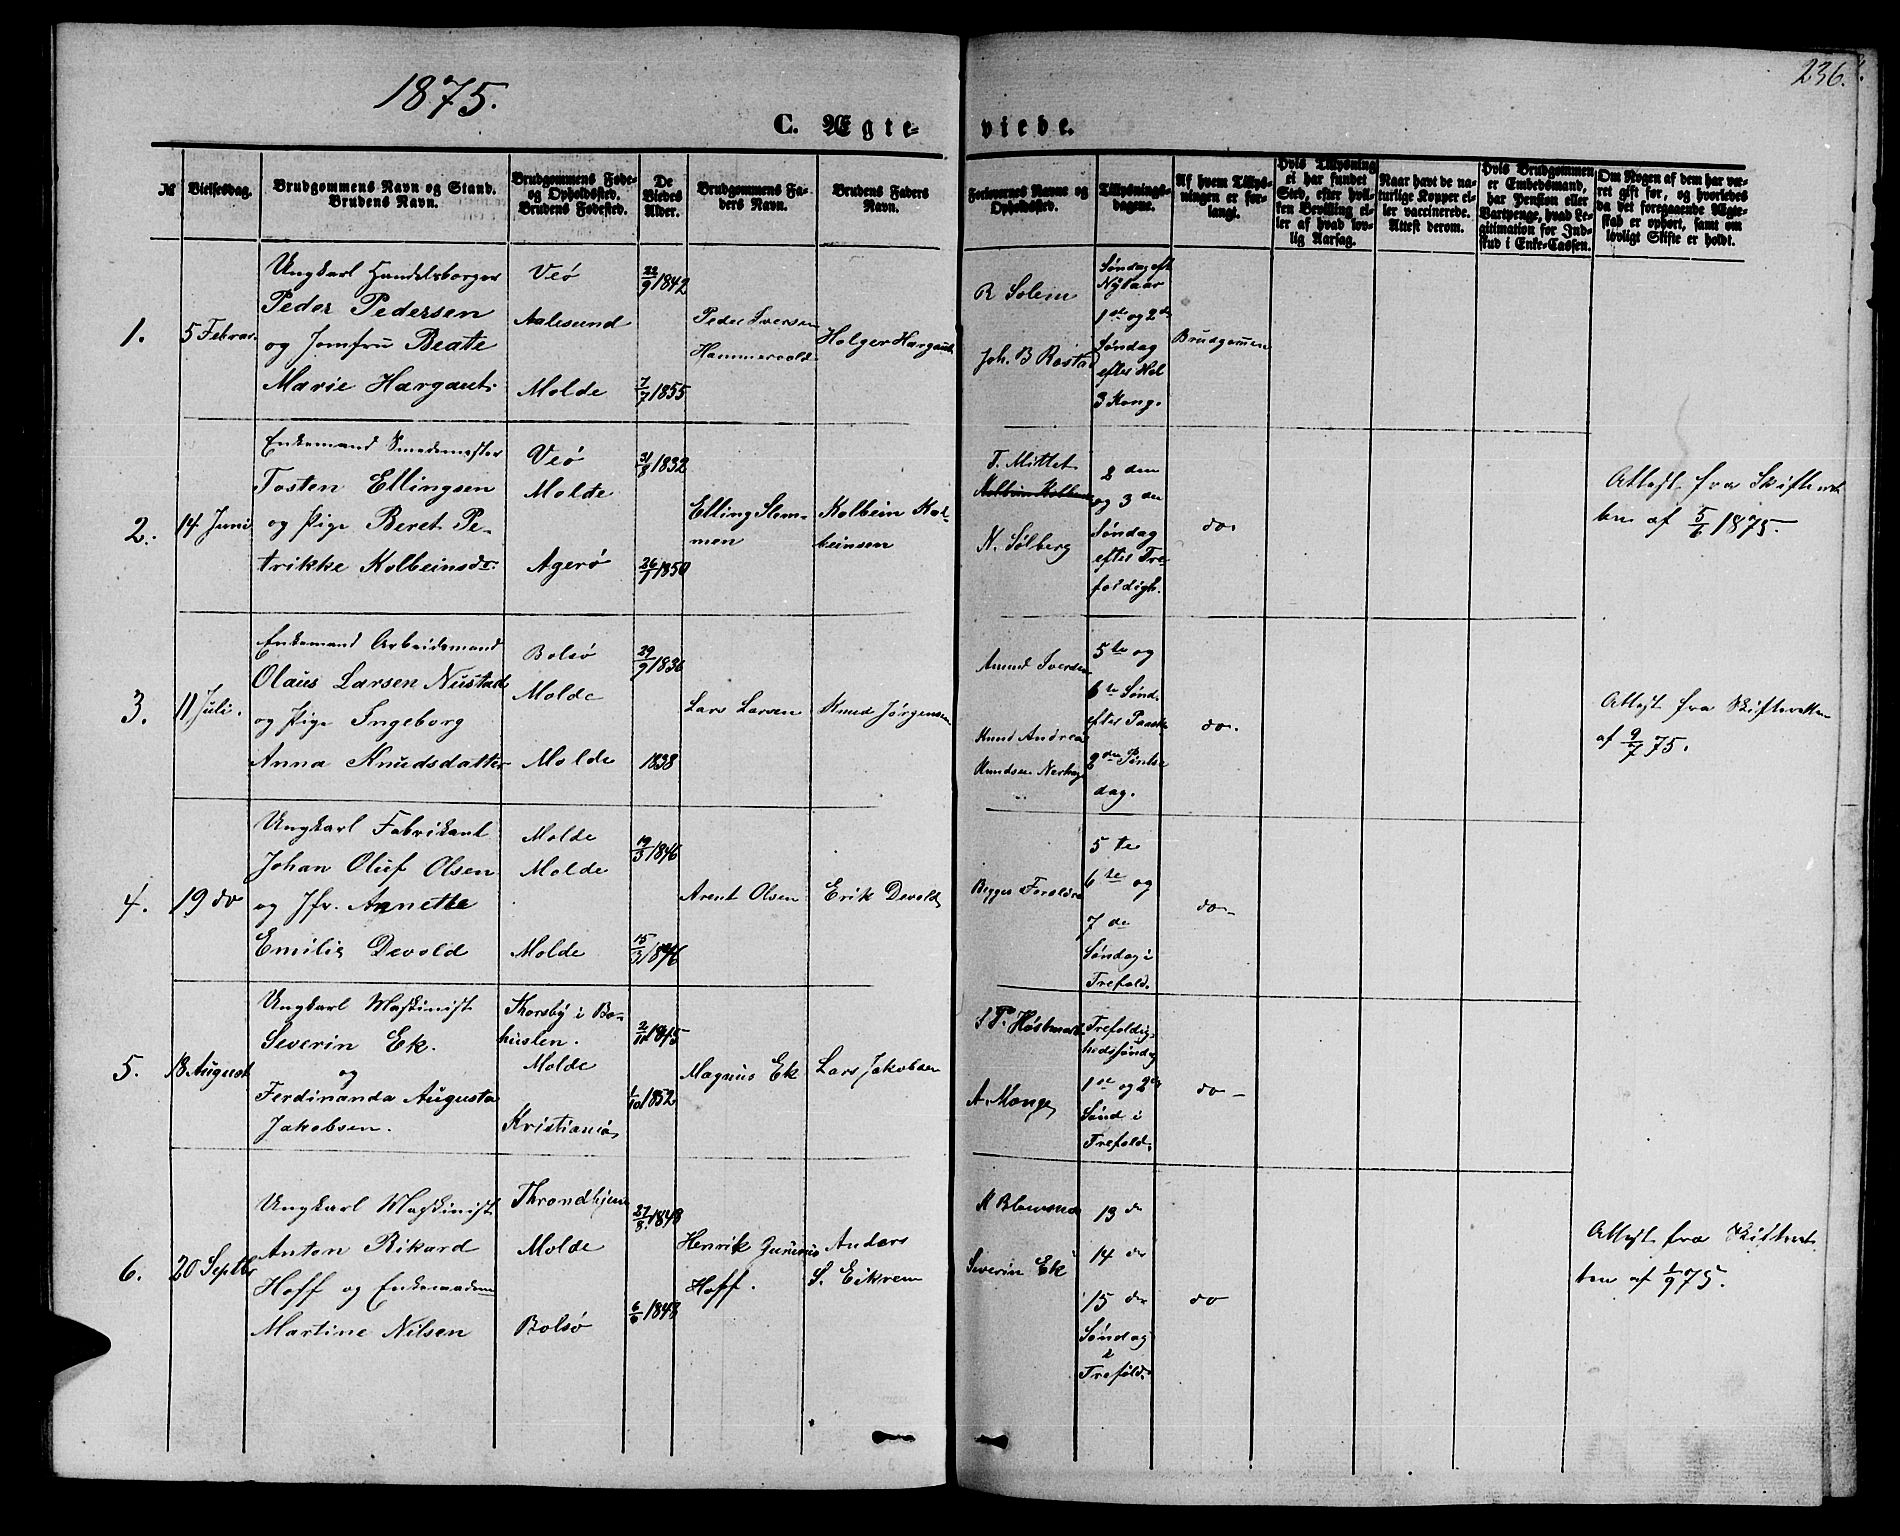 1875.
236.
C. Ægte-
viede.
№
Vielsesdag.
Brudgommens Navn og Stand.
Brudens Navn.
Brudgommens Føde-
og Opholdssted.
Brudens Fødested.
De
Viedes
Alder.
Brudgommens Fa-
ders Navn.
Brudens Faders
Navn.
Forlovernes Navne og
Opholdssted.
Tillysnings-
dagene.
Af hvem Tillys-
ningen er for-
langt.
Hvis Tillysning
ei har fundet
Sted, efter hvil-
ken Bevilling el-
ler af hvad lov-
lig Aarsag.
Naar havt de na-
turlige Kopper el-
ler vaccinerede.
Attest derom.
Hvis Brudgommen
er Embedsmand,
har Pension eller
Vartpenge, hvad Le-
gitimation for Ind-
skud i Enke-Cassen.
Om Nogen af dem har væ-
ret gift før, og hvorledes
da det foregaaende Ægte-
skab er ophørt, samt om
lovligt Skifte er holdt.
1.
5 Februar
Ungkarl Handelsborger
Peder Pedersen
og Jomfru Beate
Marie Hargaut.
Veø
Aalesund
Molde
22/9 1842
7/7 1855
Peder Iversen
Hammervold
Holger Hargaut
R Solem
Joh. B Rostad
Søndag eft
Nytaar
1ste og 2den
Søndag
efter Hel
3 Kong.
Brudgommen
2.
14 Juni
Enkemand Smedemester
Tosten Ellingsen
og Pige Beret Pe-
trikke Kolbeinsdr.
Veø
Molde
Agerø
31/8 1832
26/7 1850
Elling Slem-
men
Kolbein Kol-
beinsen
T. Mittet
N. Sølberg
2 den
og 3 den
Søndag
efter Tre
foldigh.
do.
Attest fra Skifteret
ten af 5/6 1875.
3.
11 Juli.
Enkemand Arbeidsmand
Olaus Larsen Nustad
og Pige Ingeborg
Anna Knudsdatter
Bolsø
Molde
Molde
29/9 1836
1838
Lars Larsen
Knud Jørgensen
Amund Iversen
Knud Andreas
Knudsen Nerhag
5te og
6te Sønd.
efter Paaske
2den Pintse
dag.
do.
Attest fra Skifteretten
af 9/7 75.
4.
19 do
Ungkarl Fabrikant
Johan Oluf Olsen
og Jfr. Annette
Emilie Devold
Molde
Molde
Molde
19/3 1846
15/3 1846
Arent Olsen
Erik Devold
Begges Forældre
5 te
6 te og
7 de
Søndag i
Trefold.
do.
5.
18 August
Ungkarl Maskinist
Severin Ek.
og
Ferdinanda Augusta
Jakobsen.
Thorsby i Bo-
huslen.
Molde
Kristiania
2/11 1845
1/10 1852
Magnus Ek
Lars Jakobsen
S T. Høstmark
A. Monge
Trefoldig-
hedssøndag
1ste og 2den
Sønd i
Trefold.
do
6.
20 Septbr
Ungkarl Maskinist
Anton Rikard
Hoff og Enkemadam
Martine Nilsen
Throndhjem
Molde
Bolsø
27/3 1848
6/6 1843
Henrik Junius
Hoff.
Anders
S. Eikrem
Severin Ek
13 de
14 de
15 de
Søndag
i
Trefold.
do
Attest fra Skifteret-
ten af 1/9 75.